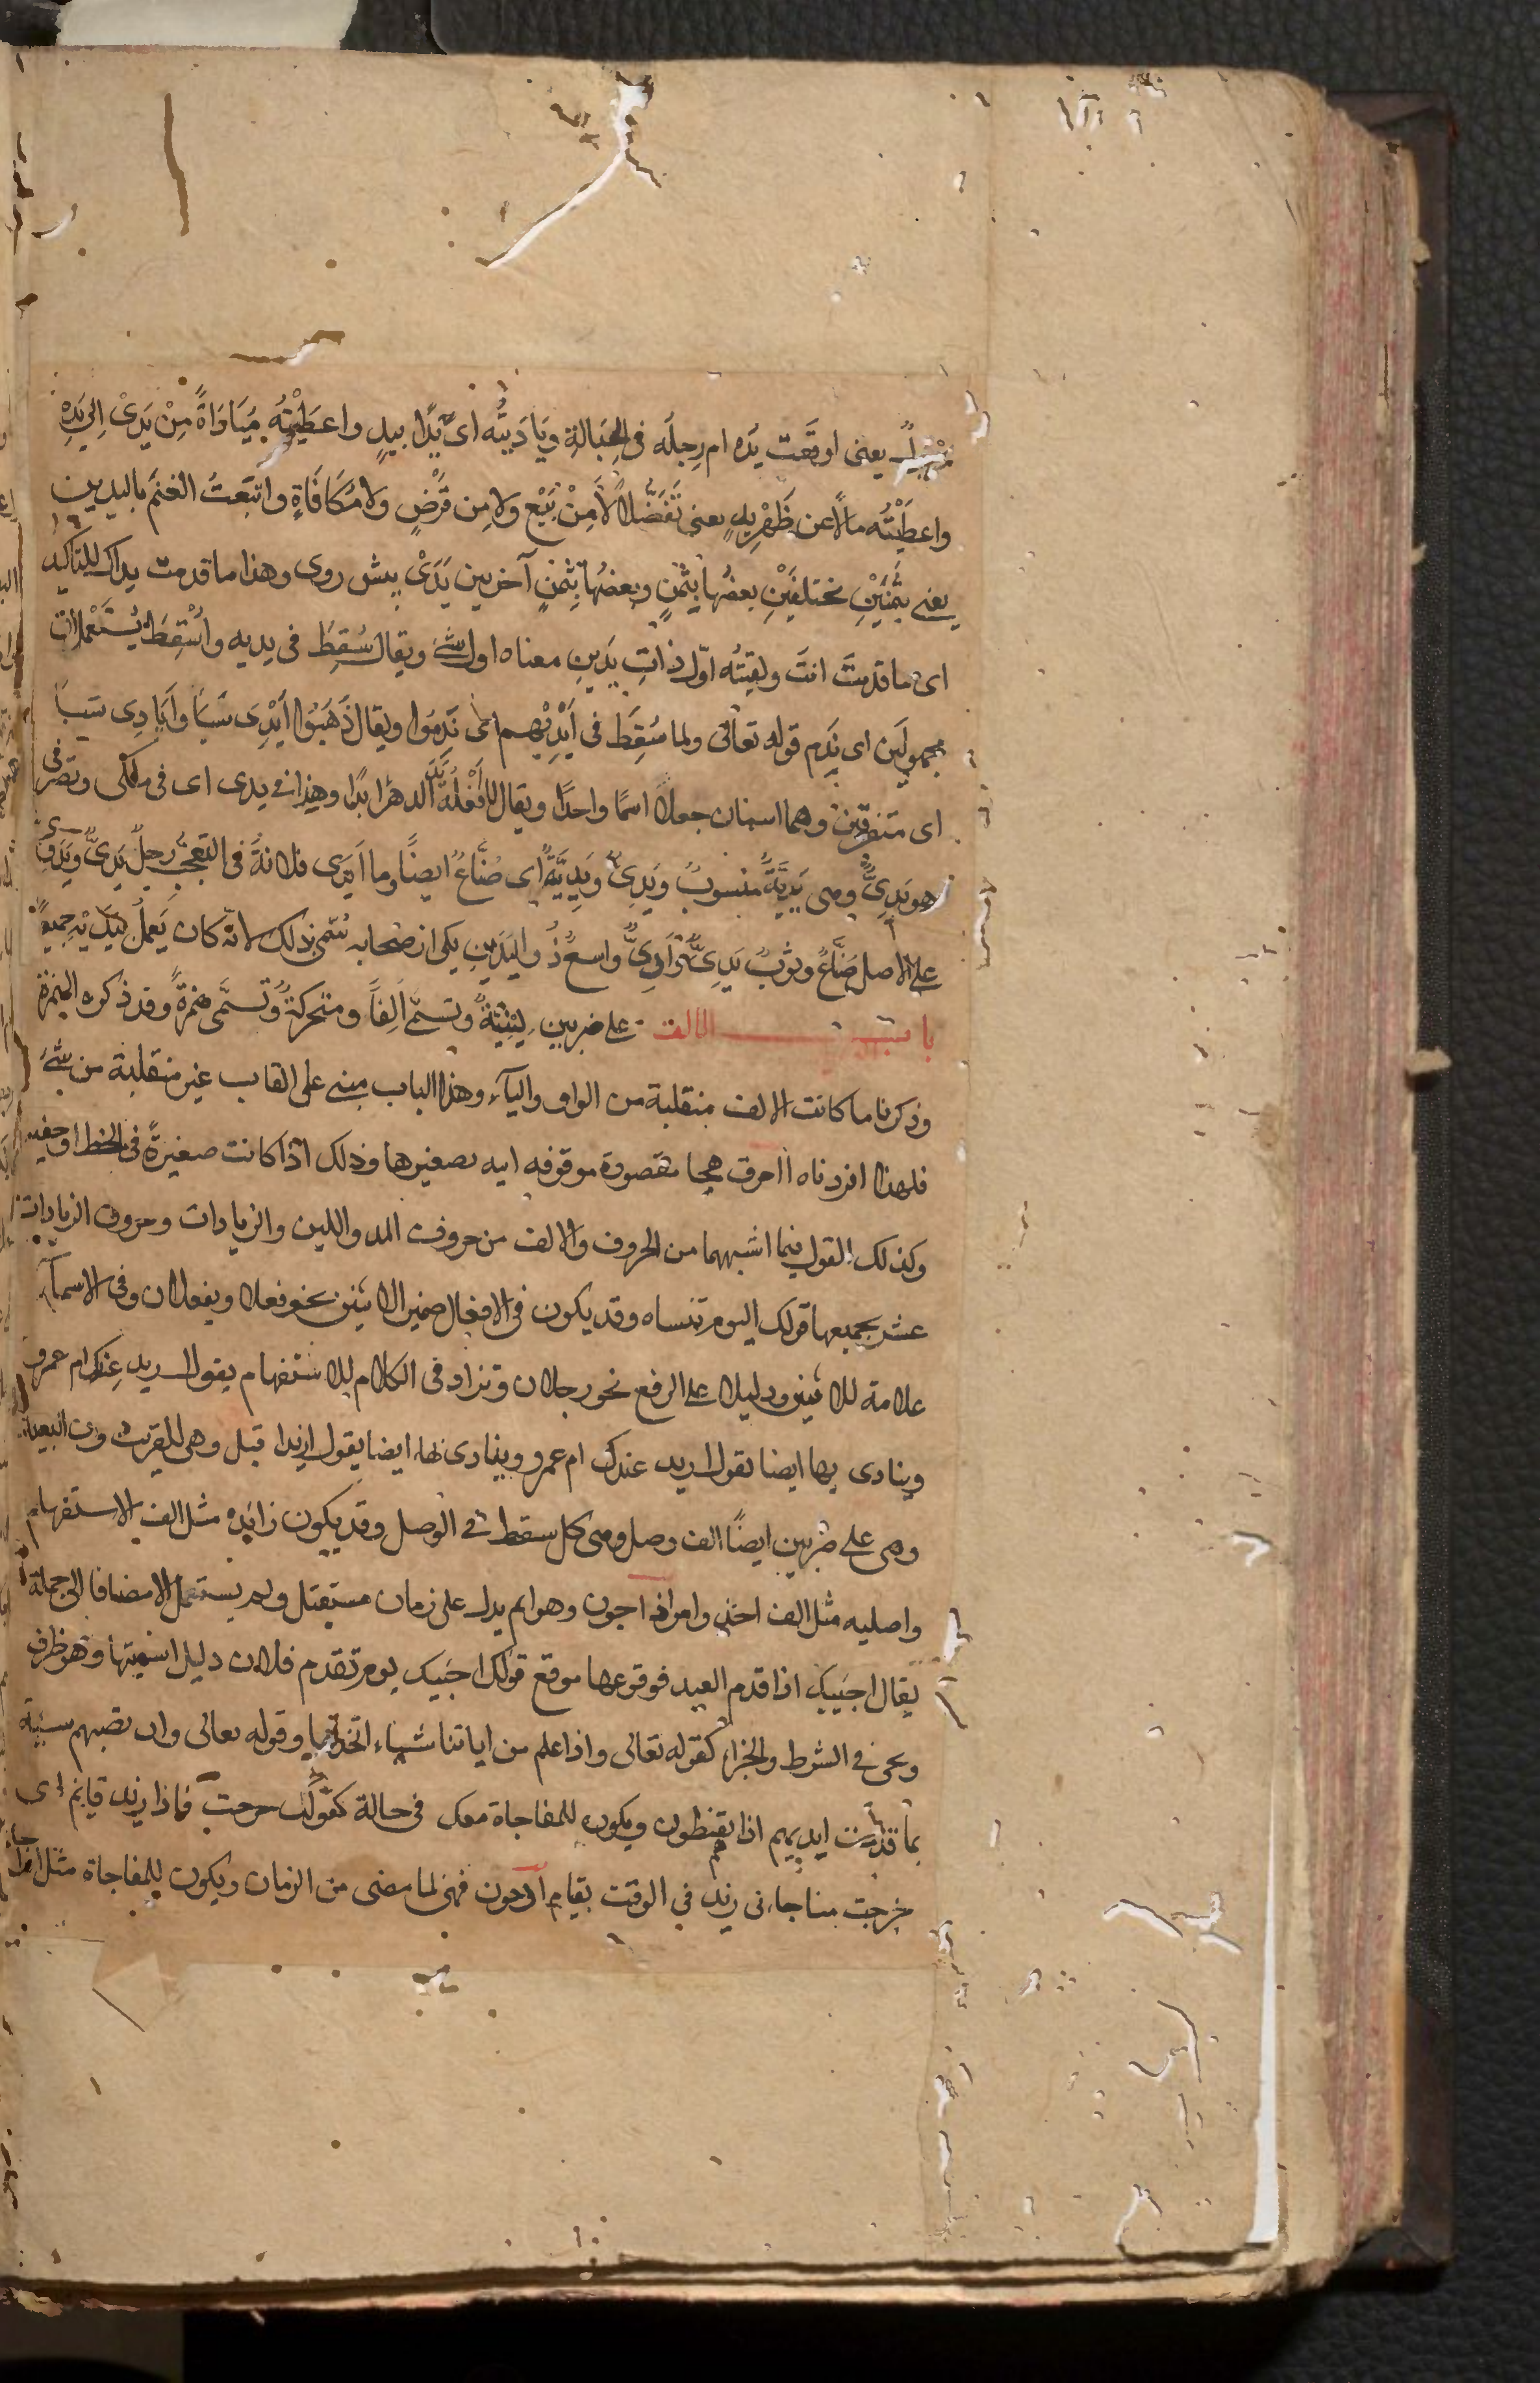 يعنى اوقعت يَدَه ام رِجلَه فى الحِبَالةِ ويَادَيتُه اى يَدًا بيدٍ واعطَيْتُه مُيَاداةً مِنْ يَدىْ اِلىٰ يَدِهٖ
واعطَيْتُه مالاً عن ظَهْرِ يدٍ يعنى تَفَضُّلًا لَا مِنْ بَيْع ولا مِن قَرْضٍ ولا مكافَاةٍ وابتَعتُ الغنَم باليدين
يعنى بثَمَنَيْنِ مختلفَيْنِ بعضُها بِثَمنٍ وبعضُها بِثَمَنٍ آخر بين يَدَىْ پيش روى وهذا ما قدمت يداك للتاكيد
اى ما قدمتَ انتَ ولقيتُه اوّل ذاتِ يَدَينِ معناه اول شىٔ ويقال سُقِطَ فى يديه واُسْقِطَ يُسْتَعْملان
مجهولَين اى نَدِم قوله تعالى ولما سُقِطَ فى اَيْدِيْهِم اى نَدِمُوا ويقال ذَهَبُوا اَيْدِى سَبَا وَاَيَادِى سَبَا
اى متفرقين وهما اسمان جعلا اسمًا واحدًا ويقال لا اَفْعَلُهُ يَدَ الدهر ابدًا وهذا فى يدى اى فى ملكى وتصرفى
هو يَدِىٌّ وهى يَدِيَّةٌ منسوبٌ ويَدِىٌّ ويَدِيَّةٌ اى صَنَّاعٌ ايضًا وما اَيدَى فلانةَ فى التعجُّب رجلٌ يَدِىٌّ ويَدَوِىٌّ
على الاصل صَنَّاعٌ وثوبٌ يَدِىٌّ وَاَدِىٌّ واسعٌ ذُو اليَدَينِ يكى از صحابه سُمّى بذلك لانّه كان يَعملُ بيَدَيْهِ جميعًا
باب الالف على ضربين لَيِّنَةٌ وتسمّى اَلِفًا ومتحركةٌ وتُسمَّى همزةً وقد ذكره الهمزة
وذكرنا ما كانت الالف منقلبة من الواو والياء وهذا الباب مبنى على القاب غير منقلبة من شىٔ
فلهذا افردناه ا احرف هجا مقصورة موقوفه ايه تصغيرها وذلك اذا كانت صغيرةً فى الخط او خفيه
وكذلك القول فيما اشبهها من الحروف والالف من حروف المد واللين والزيادات وحروف الزيادات
عشر يجمعها قولك اليوم تنساه وقد يكون فى الافعال ضمير الاثنين نحو فعلا ويفعلان وفى الاسماء
علامة للاثنين ودليلا على الرفع نحو رجلان وتزاد فى الكلام للاستفهام يقول ازيد عندك ام عمرو
وينادى بها ايضا تقول ازيد عندك ام عمرو وينادى بها ايضا يقول ازيد اقبل وهى للقريب دون البعيد
وهى على ضربين ايضًا الف وصل وهى كل سقط فى الوصل وقد يكون زائده مثل الف الاستفهام
واصليه مثل الف اخذ وامر اذا جون وهو اسم يدل على زمان مستقبل ولم يستعمل الا مضافا الى جملة
يقال اجيبك اذا قدم العيد فوقوعها موقع قولك اجيبك يوم تقدم فلان دليل اسميتها وهو ظرف
ويجى فى الشرط والجزاء كقوله تعالى واذا علم من اياتنا شياء اتخذها وقوله تعالى وان تصبهم سيئة
بما قدمت ايديهم اذا هم يقنطون ويكون للمفاجاة معك فى حالة كقولك خرجت فاذا زيد قايم اى
خرجت مفاجاءنى زيد فى الوقت بقيام اذ جون فهى لما مضى من الزمان ويكون للمفاجاة مثل اذا